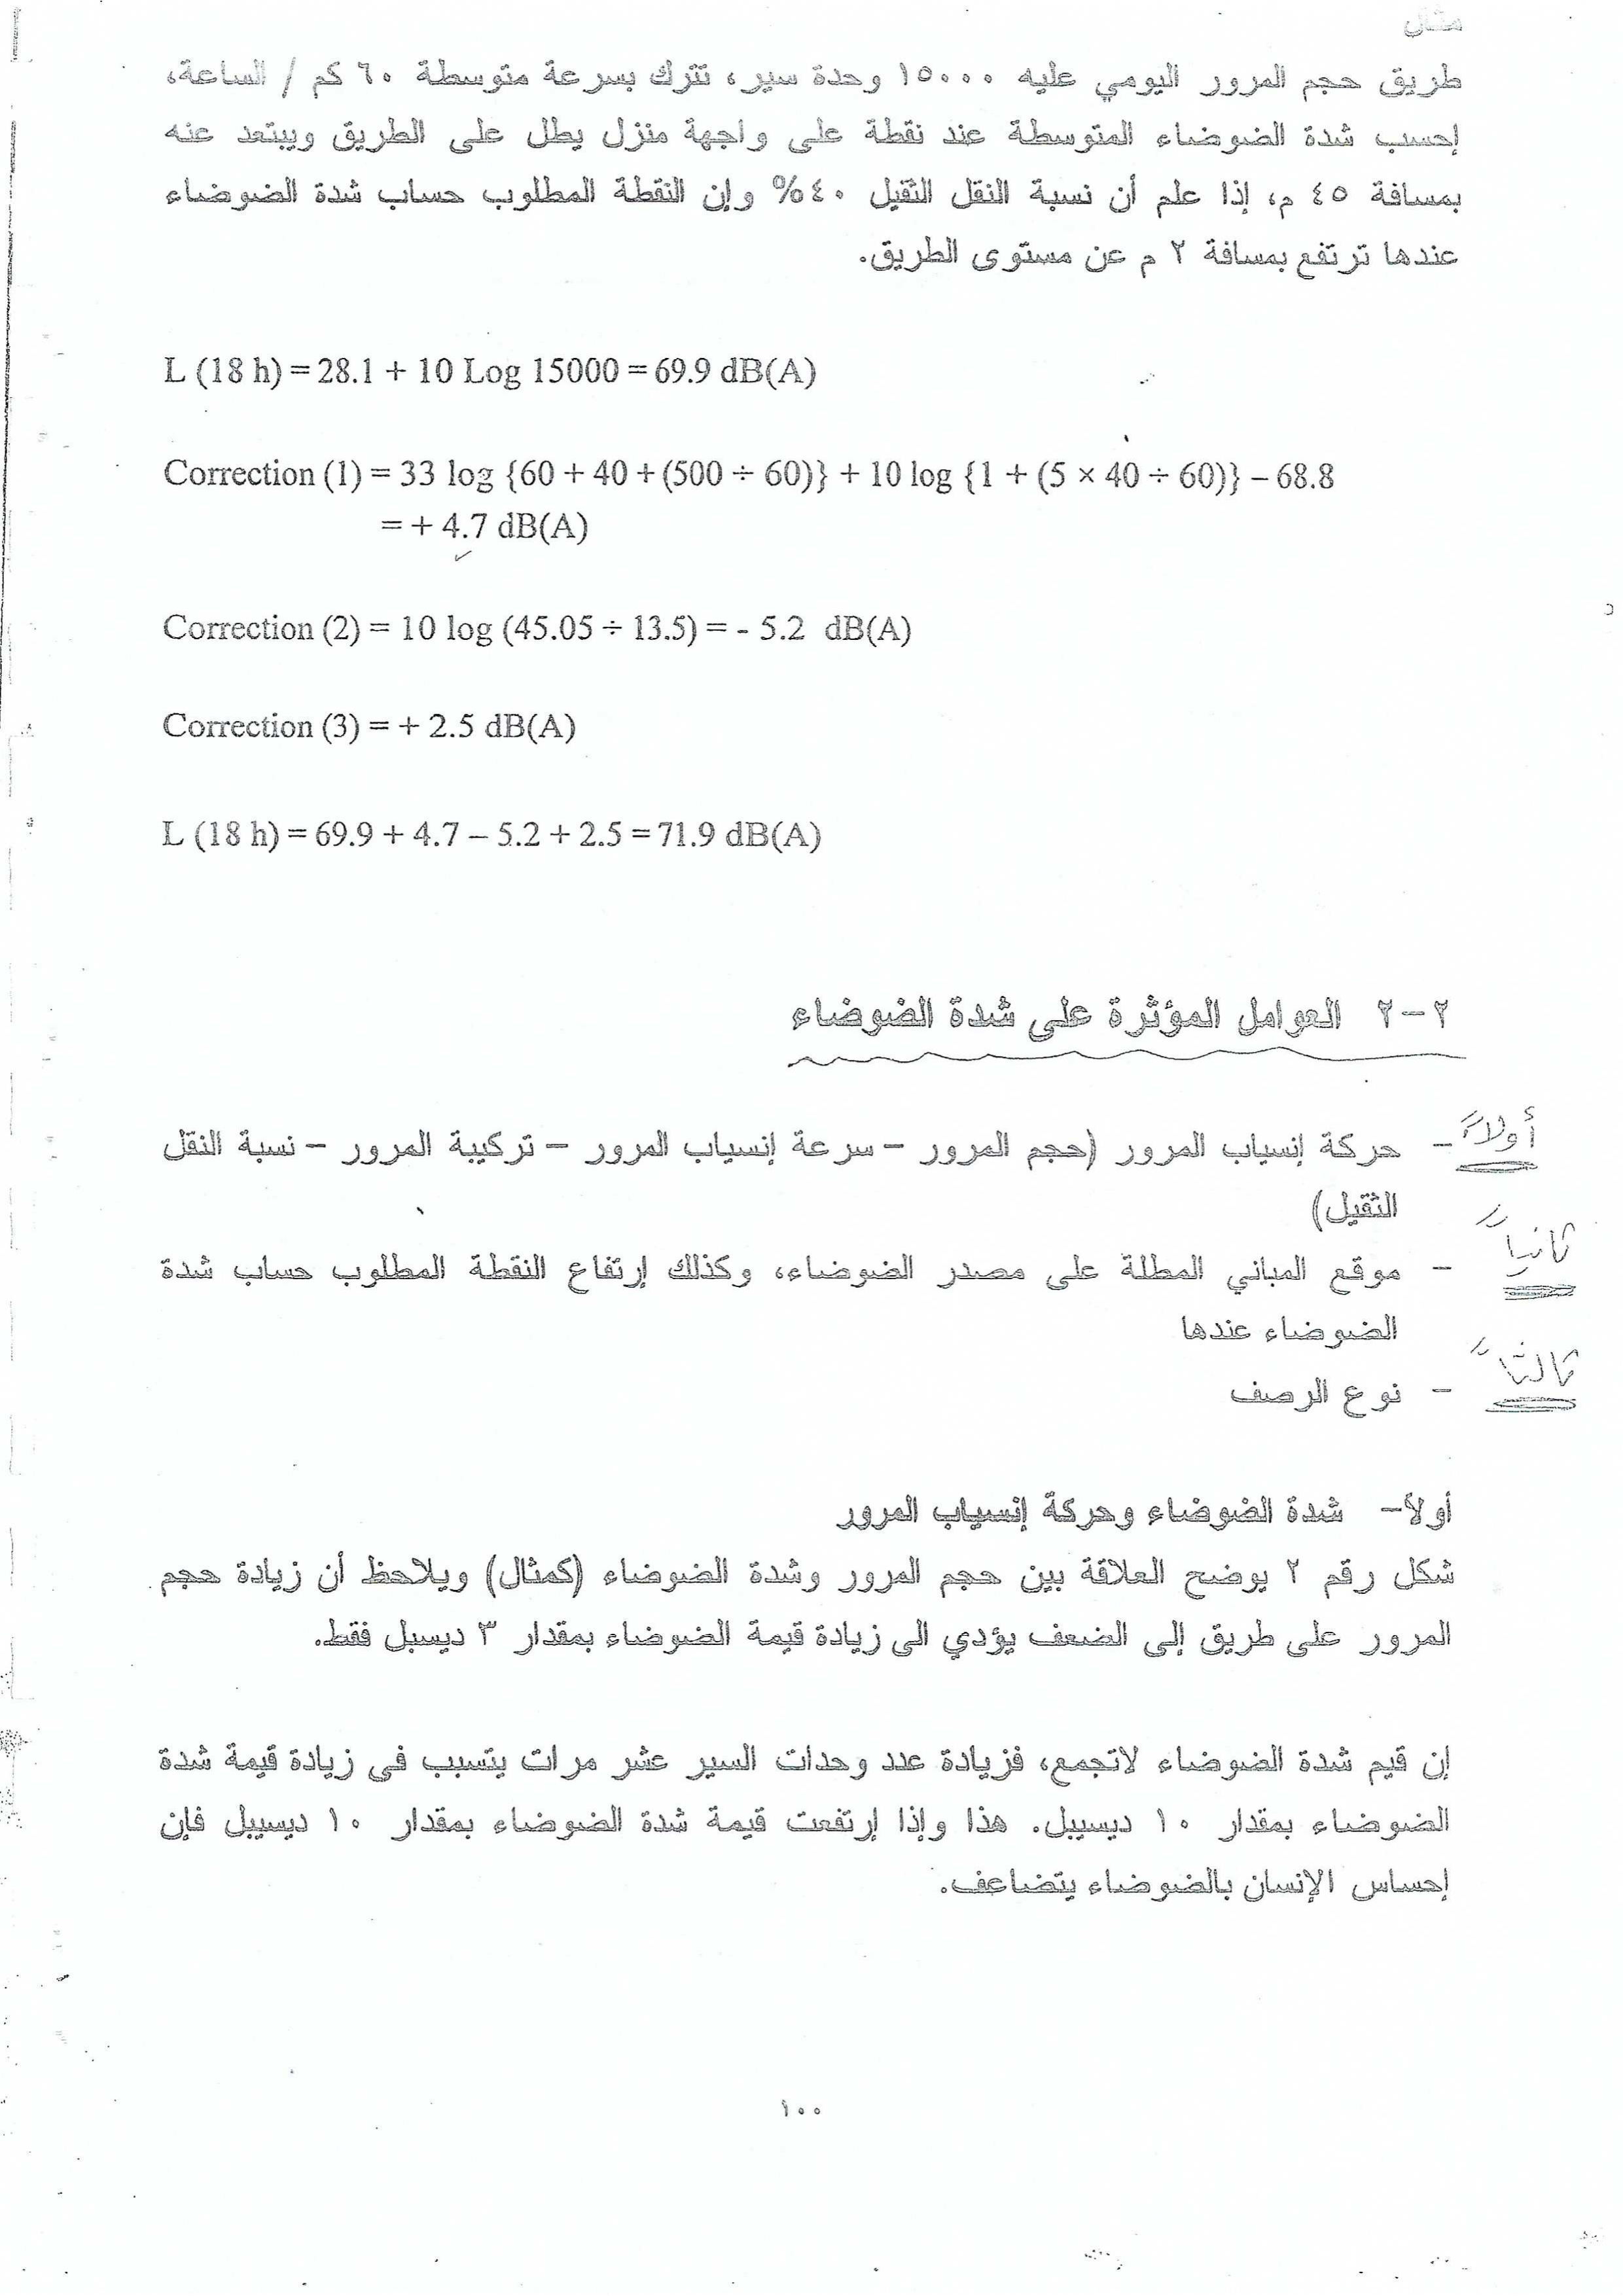 مثال
طريق حجم المرور اليومي عليه ١٥٠٠٠ وحدة سير، تترك بسرعة متوسطة ٦٠ كم / الساعة،
إحسب شدة الضوضاء المتوسطة عند نقطة على واجهة منزل يطل على الطريق ويبتعد عنه
بمسافة ٤٥ م، إذا علم أن نسبة النقل الثقيل ٤٠% وإن النقطة المطلوب حساب شدة الضوضاء
عندها ترتفع بمسافة ٢ م عن مستوى الطريق.
L (18 h) = 28.1 + 10 Log 15000 = 69.9 dB(A)
Correction (1) = 33 log {60 + 40 + (500 ÷ 60)} + 10 log {1 + (5 × 40 ÷ 60)} – 68.8
= + 4.7 dB(A)
Correction (2) = 10 log (45.05 ÷ 13.5) = - 5.2 dB(A)
Correction (3) = + 2.5 dB(A)
L (18 h) = 69.9 + 4.7 – 5.2 + 2.5 = 71.9 dB(A)
٢-٢ العوامل المؤثرة على شدة الضوضاء
أولاً - حركة إنسياب المرور (حجم المرور - سرعة إنسياب المرور - تركيبة المرور - نسبة النقل
الثقيل)
ثانياً - موقع المباني المطلة على مصدر الضوضاء، وكذلك إرتفاع النقطة المطلوب حساب شدة
الضوضاء عندها
ثالثاً - نوع الرصف
أولاً- شدة الضوضاء وحركة إنسياب المرور
شكل رقم ٢ يوضح العلاقة بين حجم المرور وشدة الضوضاء (كمثال) ويلاحظ أن زيادة حجم
المرور على طريق إلى الضعف يؤدي الى زيادة قيمة الضوضاء بمقدار ٣ ديسبل فقط.
إن قيم شدة الضوضاء لاتجمع، فزيادة عدد وحدات السير عشر مرات يتسبب في زيادة قيمة شدة
الضوضاء بمقدار ١٠ ديسيبل. هذا وإذا إرتفعت قيمة شدة الضوضاء بمقدار ١٠ ديسيبل فإن
إحساس الإنسان بالضوضاء يتضاعف.
١٠٠